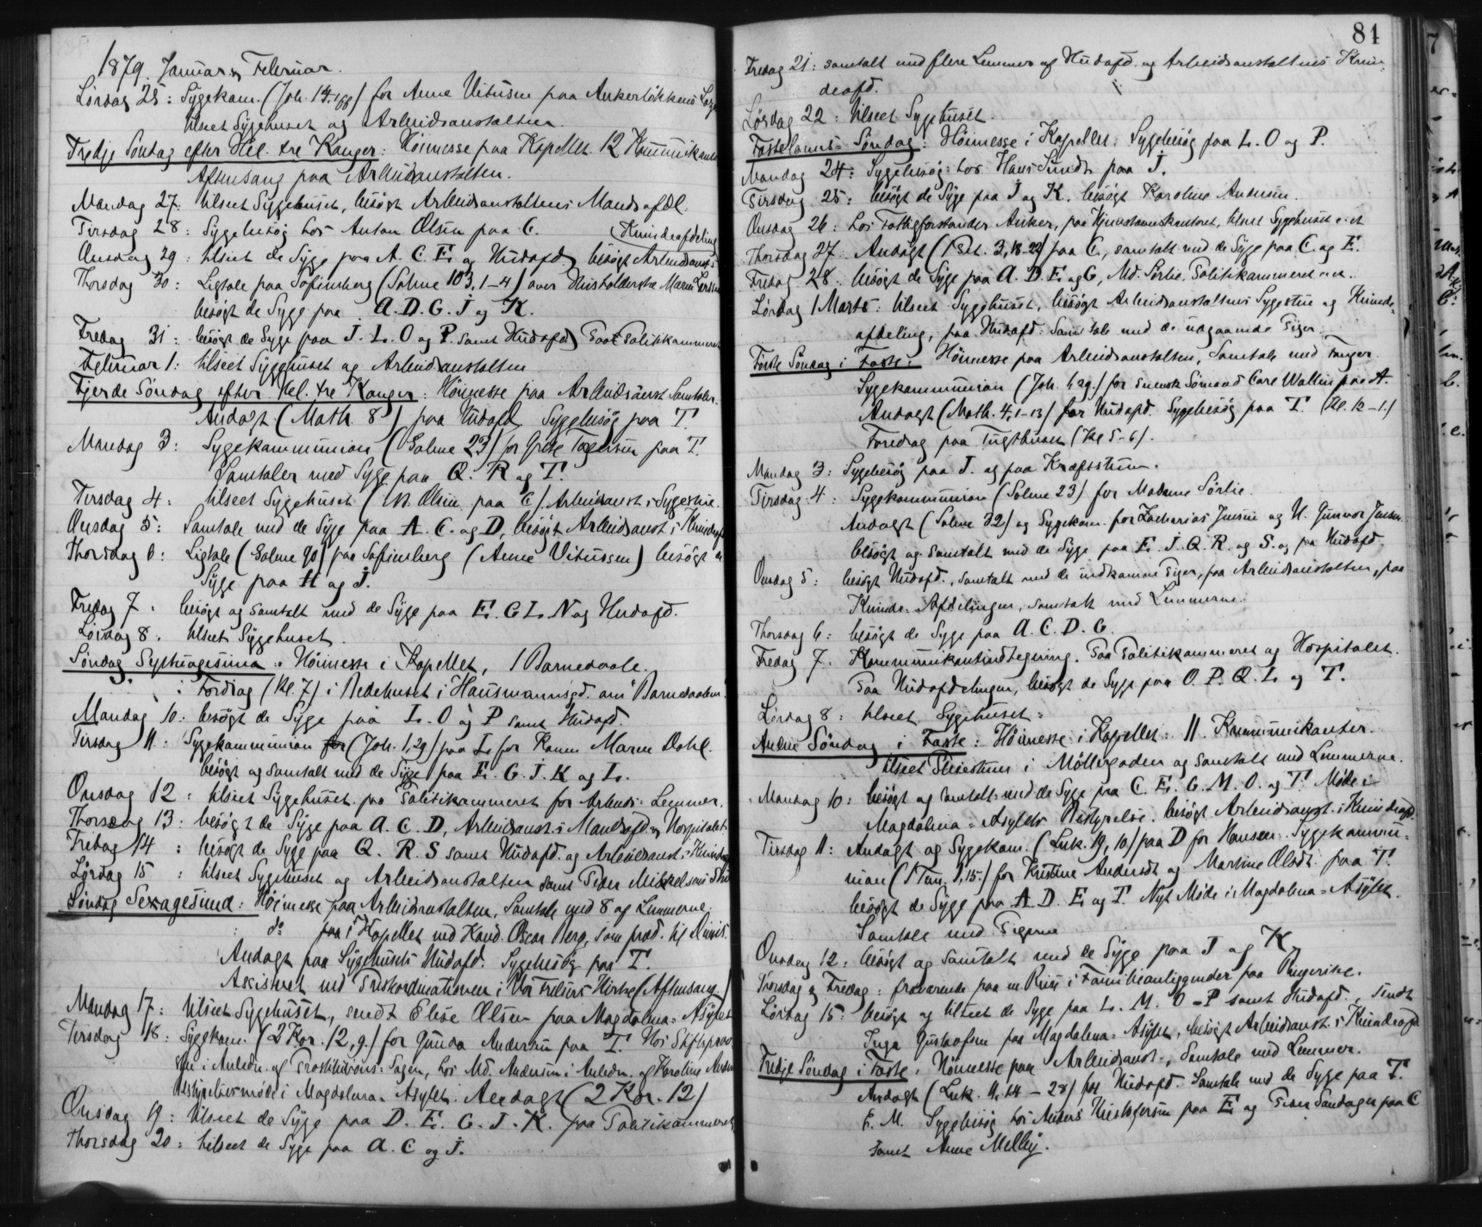 1879. Januar og Februar.
Lørdag 25: Sygekom. (Joh. 14, 1-) for Anne Vitusen paa Ankerløkkens
tilseet Sygehuset og Arbeidsanstalten.
Tredje Søndag efter Hel. tre Konger: Høimesse paa Kapellet. 12 Kommunikanter
Aftensang paa Arbeidsanstalten.
Mandag 27. tilseet Sygehuset, besøgt Arbeidsanstaltens Mandsafdel.
Tirsdag 28: Sygebesøg hos Anton Olsen paa C. Kvindeafdeling
Onsdag 29: tilseet de Syge paa A. C. E og Hudafd, besøgt Arbeidsanst:s
Thorsdag 30: Ligtale paa Sofienberg (Salme 103, 1-4) over Huusholderske Maren
besøgt de Syge paa A. D. G. J og K.
Fredag 31: besøgt de Syge paa J. L. O og P. samt Hudafd. Paa Politikammeret
Februar 1: tilseet Sygehuset og Arbeidsanstalten
Fjerde Søndag efter Hel. tre Konger: Høimesse paa Arbeidsanst. Samtaler.
Andagt (Math. 8) paa Hudafd. Sygebesøg paa T.
Mandag 3: Sygekommunion (Salme 23) for paa T.
Samtaler med Syge paa Q. R og T.
Tirsdag 4: tilseet Sygehuset ( Olsen paa C) Arbeidsanst:s Sygestue.
Onsdag 5: Samtale med de Syge paa A. C. og D, besøgt Arbeidsanst:s
Thorsdag 6: Ligtale (Salme 90) paa Sofienberg (Anne Vitussen) besøgt
Syge paa H og J.
Fredag 7. besøgt og samtalt med de Syge paa E. G L. N og Hudafd.
Lørdag 8. tilseet Sygehuset.
Søndag Septuagesima: Høimesse i Kapellet, 1 Barnedaab.
Foredrag (Kl. 7) i Bedehuset i Hausmannsgd. om "Barnedaaben"
Mandag 10: besøgt de Syge paa L. O og P samt Hudafd.
Tirsdag 11: Sygekommunion (Joh. 1, 29) paa L for Maren Dahl.
besøgt og samtalt med de Syge paa E. G. J. K og L.
Onsdag 12: tilseet Sygehuset. paa Politikammeret for Arbeids. Lemmer.
Thorsdag 13: besøgt de Syge paa A. C. D, Arbeidsanst:s Mandsafd. og Hospitalet
Fredag 14: besøgt de Syge paa Q. R. S samt Hudafd. og Arbeidsanst:s
Lørdag 15: tilseet Sygehuset og Arbeidsanstalten samt Peder Mikkelsens
Søndag Sexagesima: Høimesse paa Arbeidsanstalten, Samtale med 8 af Lemmerne.
do paa Kapellet ved Kand. Oscar Berg, som præd. til
Andagt paa Sygehusets Hudafd. Sygebesøg paa T.
Assisteret ved i Vor Frelsers Kirke (Aftensang)
Mandag 17: tilseet Sygehuset, sendt Elise Olsen paa Magdalena-Asylet
Tirsdag 18: Sygekom. (2 Kor. 12, 9.) for Gunda Andersen paa T. Hos Stiftsprov
i Anledn. af Prostitutions-Sagen, hos Md. Andersen i Anledn. af Karoline
Bestyrelsesmøde i Magdalena-Asylet. Andagt (2 Kor. 12)
Onsdag 19: tilseet de Syge paa D. E. G. J. K. paa Politikammeret
Thorsdag 20: tilseet de Syge paa A. C og J.
81
Fredag 21: samtalt med flere Lemmer af Hudafd. og Arbeidsanstaltens Kvin-
deafd.
Lørdag 22: tilseet Sygehuset.
Fastelavns-Søndag: Høimesse i Kapellet: Sygebesøg paa L. O og P.
Mandag 24: Sygebesøg hos Hans Lund paa J.
Tirsdag 25: besøgt de Syge paa J og K. besøgt Karoline Andersen.
Onsdag 26: hos Fattigforstander Anker, paa tilseet Sygehuset
Thorsdag 27. Andagt (1 Pet. 3, 18-22) paa C, samtalt med de Syge paa C og E.
Fredag 28. besøgt de Syge paa A. D. E og G, Md. Sørlie. Politikammeret
Lørdag 1 Marts: tilseet Sygehuset, besøgt Arbeidsanstaltens Sygestue og Kvinde-
afdeling, paa Hudafd. Samtale med de udgaaende Piger.
Første Søndag i Faste: Høimesse paa Arbeidsanstalten, Samtale med Fanger
Sygekommunion (Joh. 1, 29.) for svensk Sømand Carl Wallin paa A.
Andagt (Math. 4, 1-13) for Hudafd. Sygebesøg paa T. (Kl. 12-1.)
Foredrag paa Tugthuset (Kl 5-6).
Mandag 3: Sygebesøg paa J. og paa Kræftstuen.
Tirsdag 4: Sygekommunion (Salme 23) for Madame Sørlie.
Andagt (Salme 32) og Sygekom. for Zacharias Jensen og Gunvor Jensen
besøgt og samtalt med de Syge paa E. J. Q. R. og S. og paa Hudafd.
Onsdag 5: besøgt Hudafd., samtalt med de indkomne Piger, paa Arbeidsanstalten, paa
Kvinde-Afdelingen, samtalt med Lemmerne.
Thorsdag 6: besøgt de Syge paa A. C. D. G.
Fredag 7. Kommunikantindtegning. Paa Politikammeret og Hospitalet.
Paa Hudafdelingen, besøgt de Syge paa O. P. Q. L. og T.
Lørdag 8: tilseet Sygehuset:
Anden Søndag i Faste: Høimesse i Kapellet: 11 Kommunikanter.
tilseet i Møllergaden og samtalt med Lemmerne.
Mandag 10: besøgt og samtalt med de Syge paa C. E. G. M. O. og T. Møde i
Magdalena-Asylets Bestyrelse. besøgt Arbeidsanst:s Kvindeafd.
Tirsdag 11: Andagt og Sygekom. (Luk. 19, 10) paa D for Hansen. Sygekommu-
nion (1 Tim. 1, 15.) for Kristine Andersdt og Martine Olsdt. paa T.
besøgt de Syge paa A. D. E og T. Nyt Møde i Magdalena-Asylet.
Samtale med Pigerne
Onsdag 12: besøgt og samtalt med de Syge paa J og K.
Torsdag og Fredag: fraværende paa en Reise i Familieanliggender paa Ringerike.
Lørdag 15: besøgt og tilseet de Syge paa L. M. O-P samt Hudafd., sendt
Inga Gustafsen paa Magdalena-Asylet, besøgt Arbeidsanst:s Kvindeafd.
Tredje Søndag i Faste: Høimesse paa Arbeidsanst:, Samtale med Lemmer.
Andagt (Luk. 11, 14-28) paa Hudafd. Samtale med de Syge paa T.
E. M. Sygebesøg hos Anders paa E og Peder paa C
samt Anne Melby.